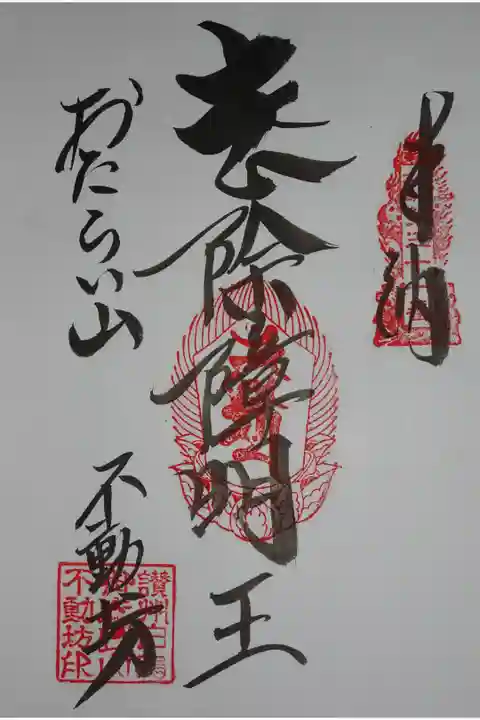 奉納
悲除障明王
みたらい山
不動坊
讃州白鳥
不動坊印